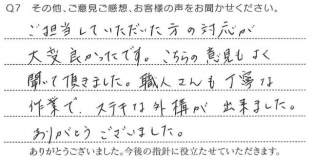 Q7 その他、ご意見ご感想、お客様の声をお聞かせください。
ご担当していただいた方の対応が
大変良かったです。こちらの意見もよく
聞いて頂きました。職人さんも丁寧な
作業で、ステキな外構が出来ました。
ありがとうございました。
ありがとうございました。今後の指針に役立たせていただきます。